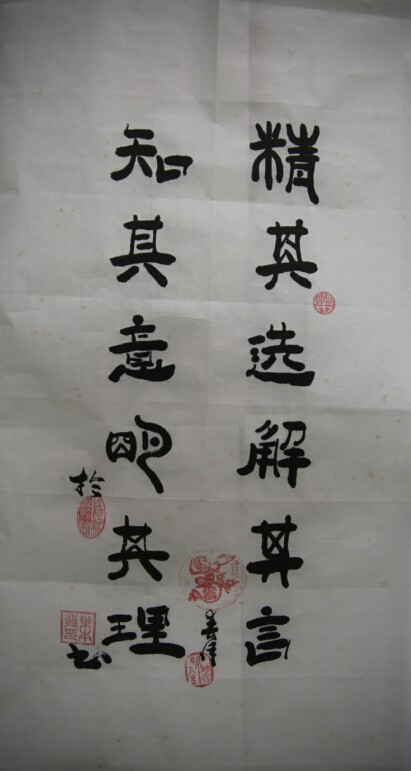 精其选解其言
知其意明其理
于
书